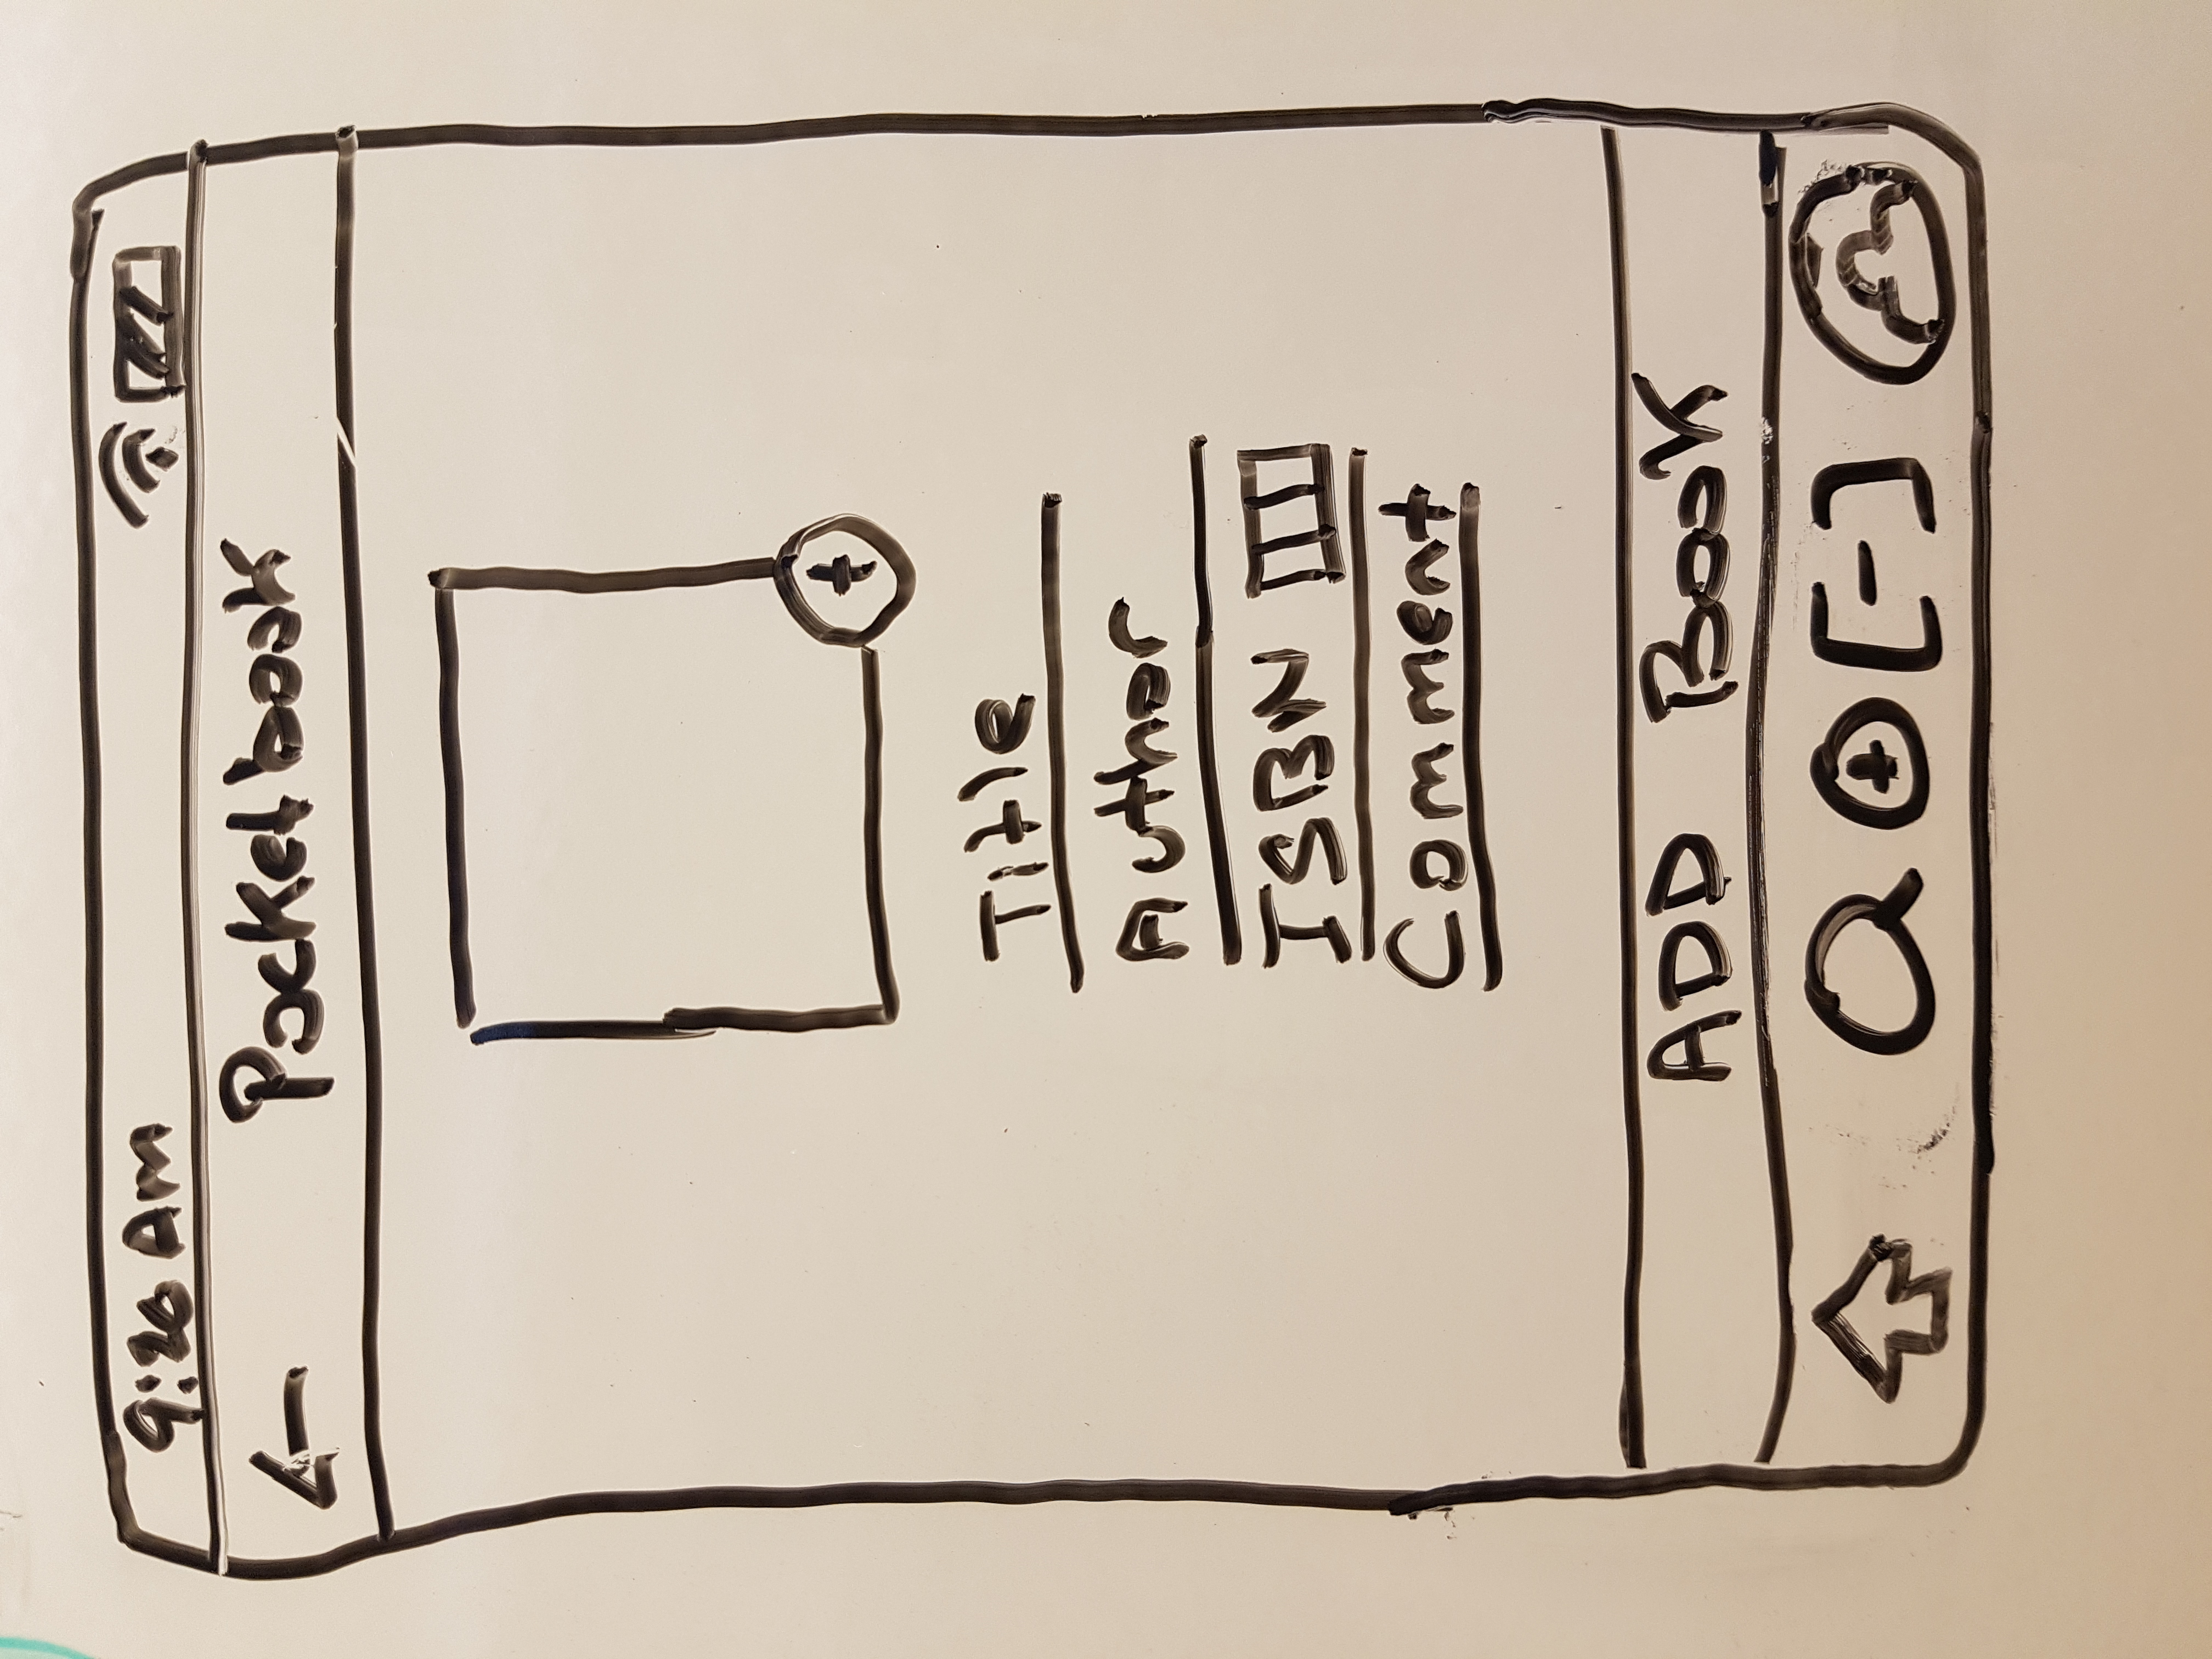 9:26 Am
Pocketbook
Title
Author
ISBN
Comment
ADD Book